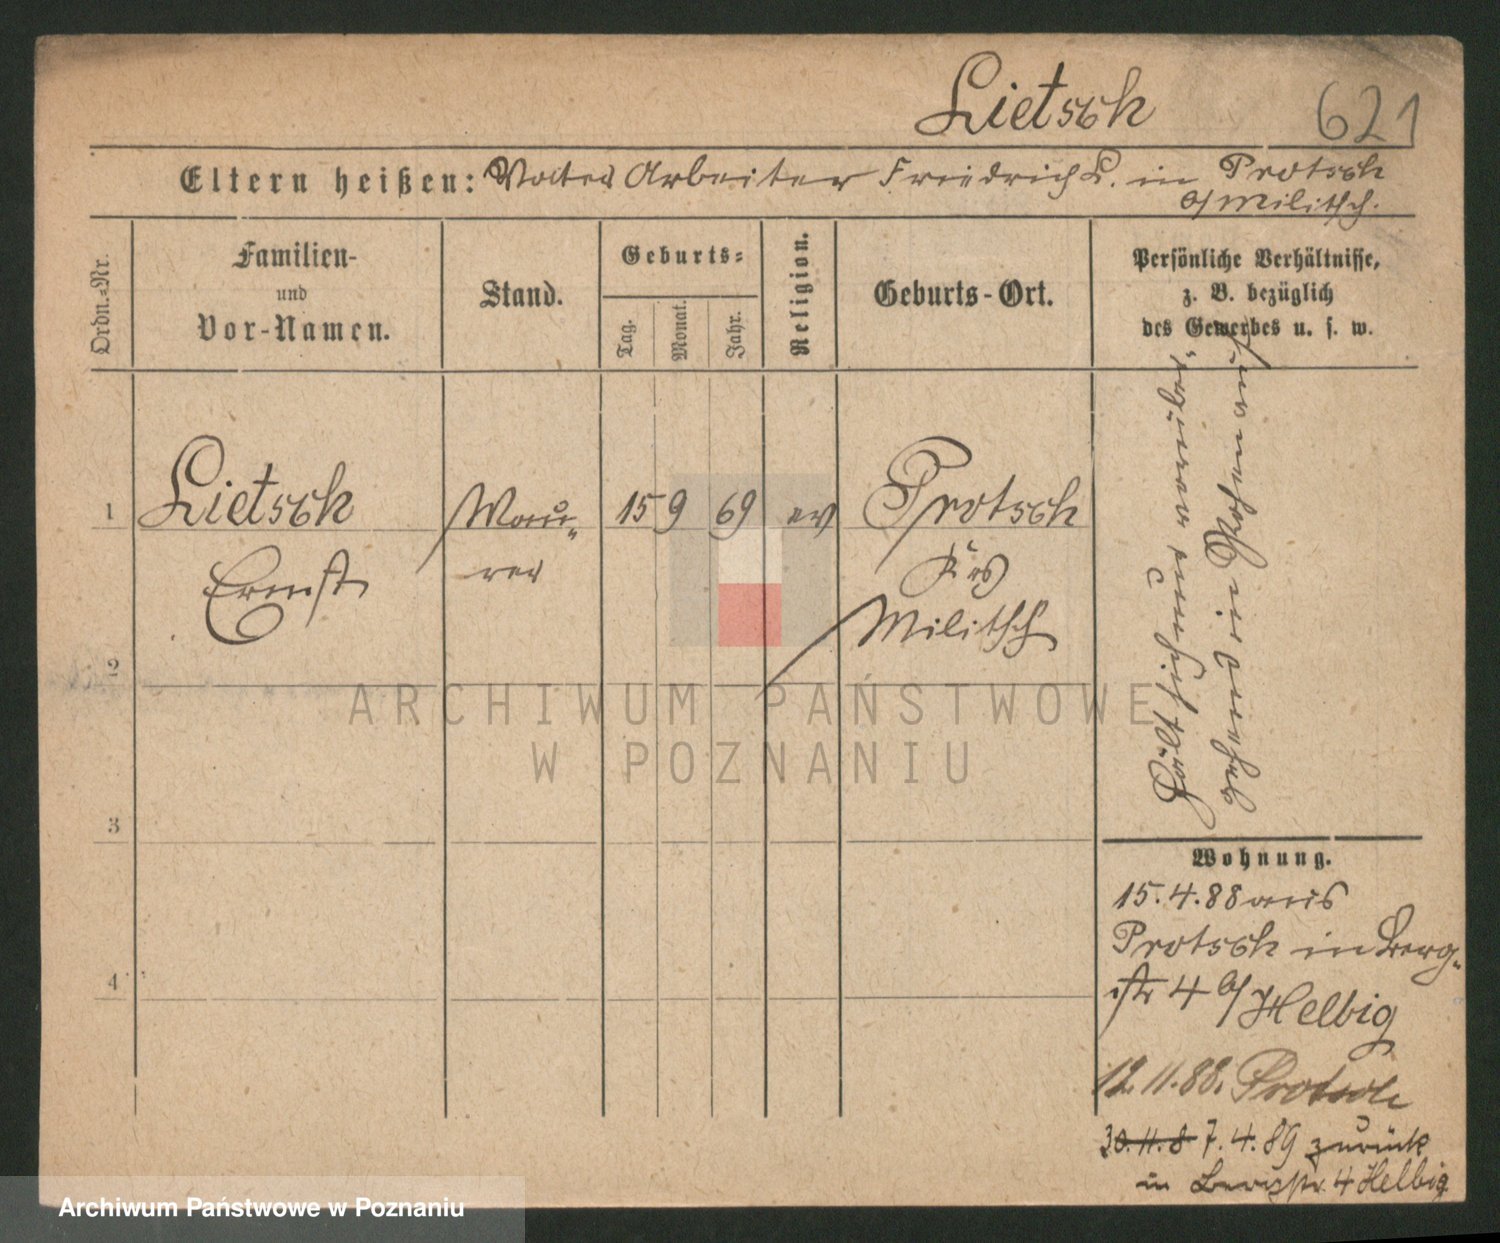 Lietsch 621
Eltern heißen: Vater Arbeiter Friedrich L. in Protsch
b/ Militsch.
Ordn.-Nr.
Familien-
und
Vor-Namen.
Stand.
Geburts-
Tag.
Monat.
Jahr.
Religion.
Geburts-Ort.
Persönliche Verhältnisse,
z. B. bezüglich
des Gewerbes u. s. w.
1 Lietsch Mau- 15 9 69 ev Protsch
Ernst rer Krs
Militsch
2
3
4
Wohnung.
15.4.88 aus
Protsch in Berg-
str 4 b/ Helbig
12.11.88. Protsch
30.11.8 7.4.89 zurück
in Bergstr. 4 Helbig
ARCHIWUM PAŃSTWOWE
W POZNANIU
Archiwum Państwowe w Poznaniu